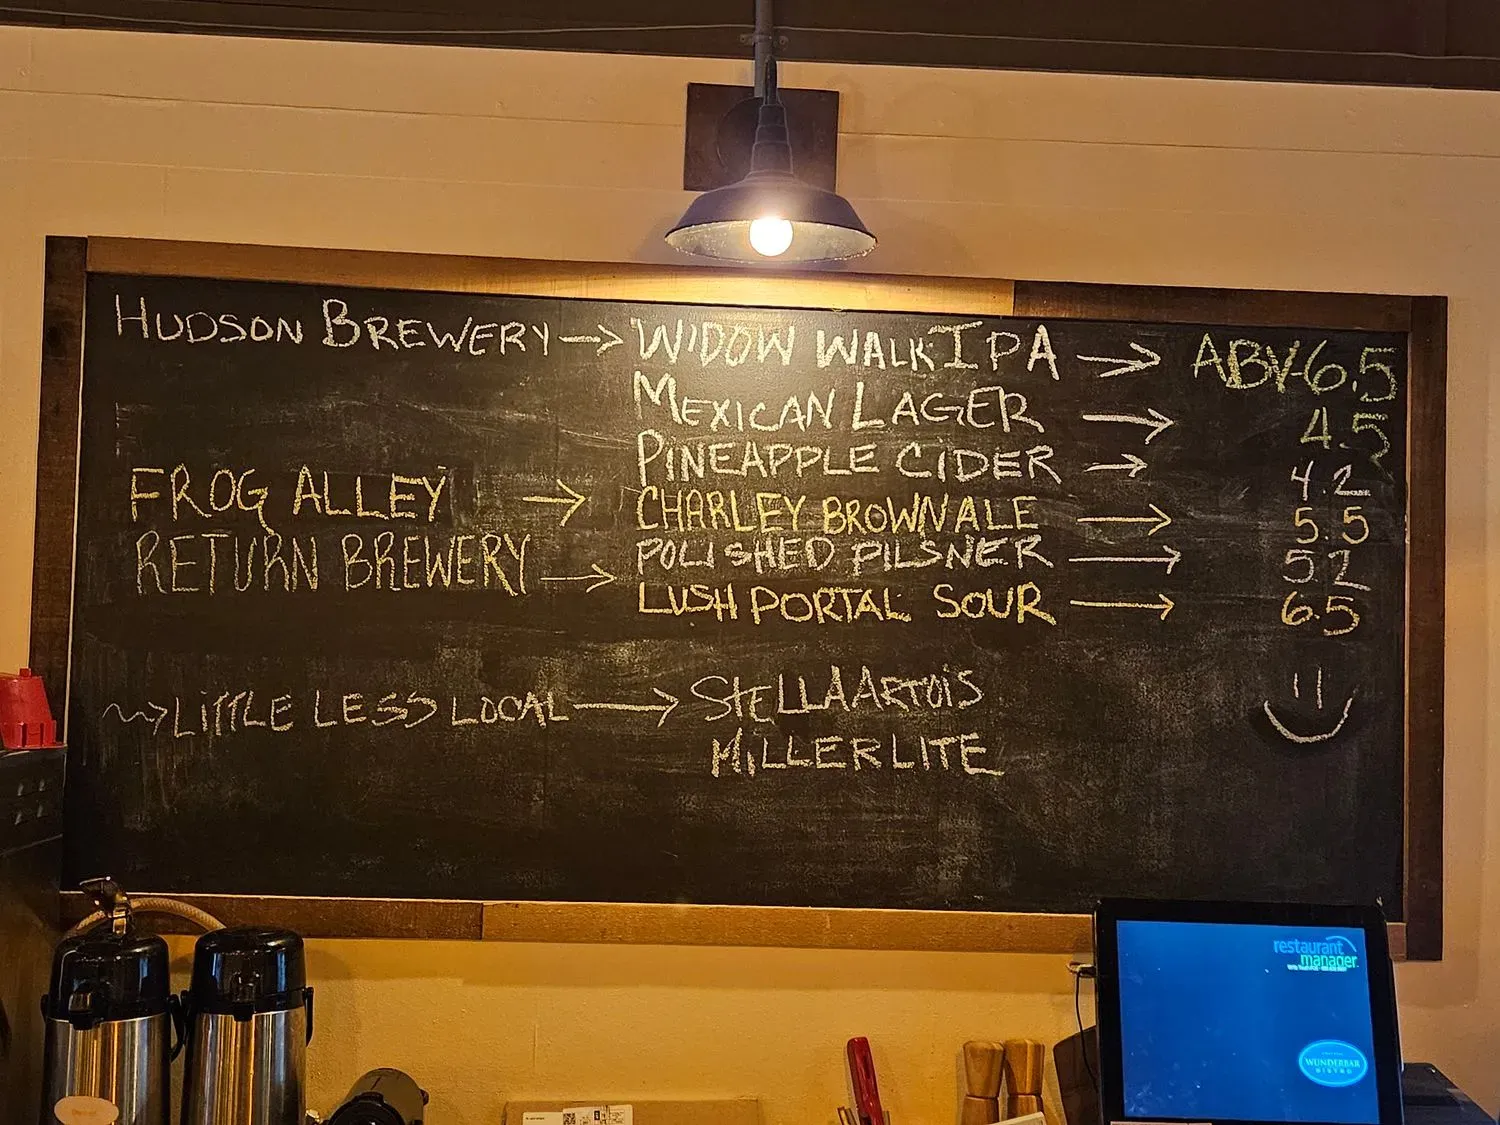 HUDSON BREWERY → WIDOW WALK IPA → ABV-6.5
MEXICAN LAGER → 4.5
PINEAPPLE CIDER → 4.2
FROG ALLEY → CHARLEY BROWN ALE → 5.5
RETURN BREWERY → POLISHED PILSNER → 5.2
LUSH PORTAL SOUR → 6.5
→ LITTLE LESS LOCAL → STELLA ARTOIS
MILLER LITE
restaurant
manager
WUNDERBAR
BISTRO